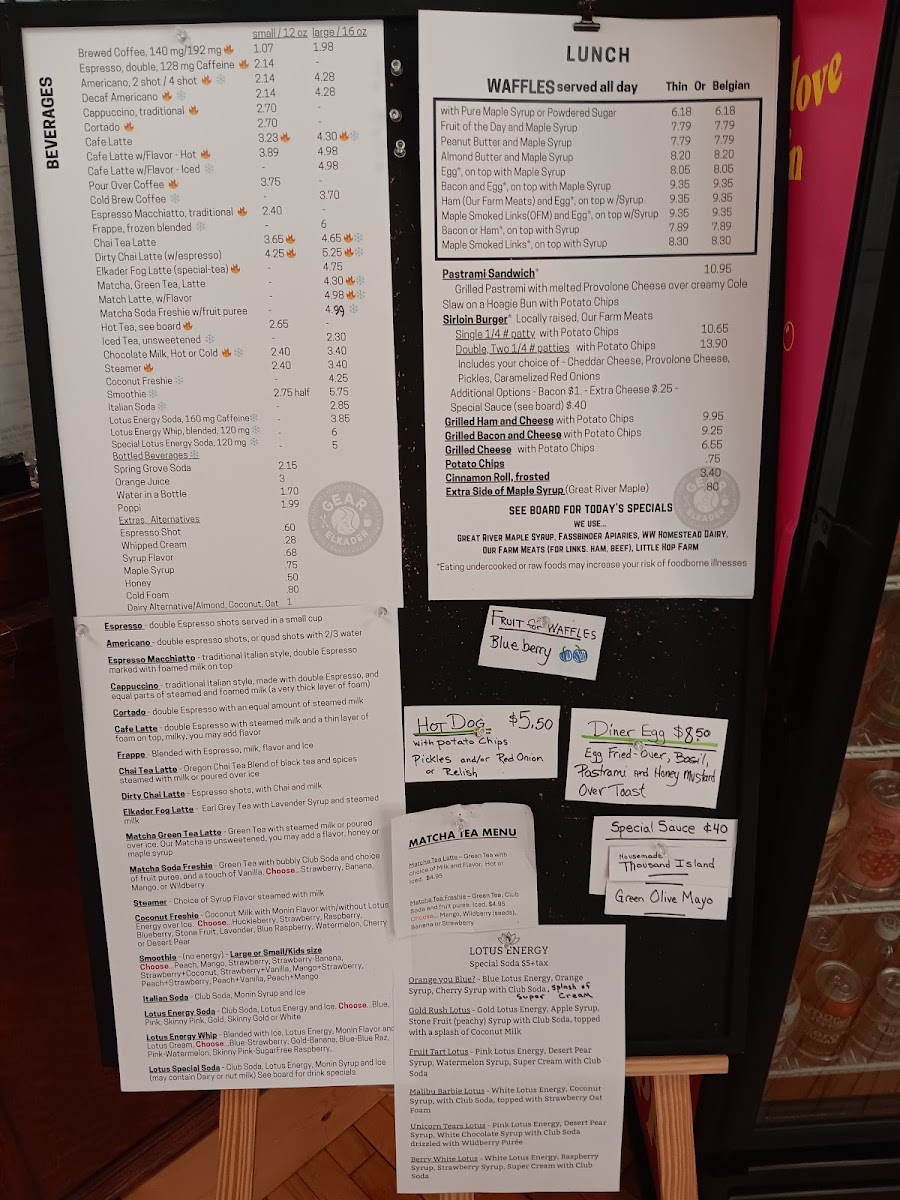 BEVERAGES
small / 12 oz large / 16 oz
Brewed Coffee, 140 mg/192 mg 1.07 1.98
Espresso, double, 128 mg Caffeine 2.14 -
Americano, 2 shot / 4 shot 2.14 4.28
Decaf Americano 2.14 4.28
Cappuccino, traditional 2.70 -
Cortado 2.70 -
Cafe Latte 3.23 4.30
Cafe Latte w/Flavor - Hot 3.89 4.98
Cafe Latte w/Flavor - Iced - 4.98
Pour Over Coffee 3.75
Cold Brew Coffee - 3.70
Espresso Macchiatto, traditional 2.40 -
Frappe, frozen blended - 6
Chai Tea Latte 3.65 4.65
Dirty Chai Latte (w/espresso) 4.25 5.25
Elkader Fog Latte (special-tea) - 4.75
Matcha, Green Tea, Latte - 4.30
Match Latte, w/Flavor - 4.98
Matcha Soda Freshie w/fruit puree - 4.99
Hot Tea, see board 2.65 -
Iced Tea, unsweetened - 2.30
Chocolate Milk, Hot or Cold 2.40 3.40
Steamer 2.40 3.40
Coconut Freshie - 4.25
Smoothie 2.75 half 5.75
Italian Soda - 2.85
Lotus Energy Soda, 160 mg Caffeine - 3.85
Lotus Energy Whip, blended, 120 mg - 6
Special Lotus Energy Soda, 120 mg - 5
Bottled Beverages
Spring Grove Soda 2.15
Orange Juice 3
Water in a Bottle 1.70
Poppi 1.99
Extras, Alternatives
Espresso Shot .60
Whipped Cream .28
Syrup Flavor .68
Maple Syrup .75
Honey .50
Cold Foam .80
Dairy Alternative/Almond, Coconut, Oat 1
GEAR
ELKADER
Espresso - double Espresso shots served in a small cup
Americano - double espresso shots, or quad shots with 2/3 water
Espresso Macchiatto - traditional Italian style, double Espresso
marked with foamed milk on top
Cappuccino - traditional Italian style, made with double Espresso, and
equal parts of steamed and foamed milk (a very thick layer of foam)
Cortado - double Espresso with an equal amount of steamed milk
Cafe Latte - double Espresso with steamed milk and a thin layer of
foam on top, milky, you may add flavor
Frappe - Blended with Espresso, milk, flavor and Ice
Chai Tea Latte - Oregon Chai Tea Blend of black tea and spices
steamed with milk or poured over ice
Dirty Chai Latte - Espresso shots, with Chai and milk
Elkader Fog Latte - Earl Grey Tea with Lavender Syrup and steamed
milk
Matcha Green Tea Latte - Green Tea with steamed milk or poured
over ice. Our Matcha is unsweetened, you may add a flavor, honey or
maple syrup
Matcha Soda Freshie - Green Tea with bubbly Club Soda and choice
of fruit puree, and a touch of Vanilla. Choose...Strawberry, Banana,
Mango, or Wildberry
Steamer - Choice of Syrup Flavor steamed with milk
Coconut Freshie - Coconut Milk with Monin Flavor with/without Lotus
Energy over Ice. Choose...Huckleberry, Strawberry, Raspberry,
Blueberry, Stone Fruit, Lavender, Blue Raspberry, Watermelon, Cherry
or Desert Pear
Smoothie - (no energy) - Large or Small/Kids size
Choose...Peach, Mango, Strawberry, Strawberry-Banana,
Strawberry+Coconut, Strawberry+Vanilla, Mango+Strawberry,
Peach+Strawberry, Peach+Vanilla, Peach+Mango
Italian Soda - Club Soda, Monin Syrup and Ice
Lotus Energy Soda - Club Soda, Lotus Energy and Ice, Choose...Blue,
Pink, Skinny Pink, Gold, Skinny Gold or White
Lotus Energy Whip - Blended with Ice, Lotus Energy, Monin Flavor and
Lotus Cream, Choose...Blue-Strawberry, Gold-Banana, Blue-Blue Raz,
Pink-Watermelon, Skinny Pink-SugarFree Raspberry,
Lotus Special Soda - Club Soda, Lotus Energy, Monin Syrup and Ice
(may contain Dairy or nut milk) See board for drink specials
LUNCH
WAFFLES served all day Thin Or Belgian
with Pure Maple Syrup or Powdered Sugar 6.18 6.18
Fruit of the Day and Maple Syrup 7.79 7.79
Peanut Butter and Maple Syrup 7.79 7.79
Almond Butter and Maple Syrup 8.20 8.20
Egg*, on top with Maple Syrup 8.05 8.05
Bacon and Egg*, on top with Maple Syrup 9.35 9.35
Ham (Our Farm Meats) and Egg*, on top w/Syrup 9.35 9.35
Maple Smoked Links(OFM) and Egg*, on top w/Syrup 9.35 9.35
Bacon or Ham*, on top with Syrup 7.89 7.89
Maple Smoked Links*, on top with Syrup 8.30 8.30
Pastrami Sandwich* 10.95
Grilled Pastrami with melted Provolone Cheese over creamy Cole
Slaw on a Hoagie Bun with Potato Chips
Sirloin Burger* Locally raised, Our Farm Meats
Single 1/4 # patty with Potato Chips 10.65
Double, Two 1/4 # patties with Potato Chips 13.90
Includes your choice of - Cheddar Cheese, Provolone Cheese,
Pickles, Caramelized Red Onions
Additional Options - Bacon $1. - Extra Cheese $.25 -
Special Sauce (see board) $.40
Grilled Ham and Cheese with Potato Chips 9.95
Grilled Bacon and Cheese with Potato Chips 9.25
Grilled Cheese with Potato Chips 6.55
Potato Chips .75
Cinnamon Roll, frosted 3.40
Extra Side of Maple Syrup (Great River Maple) .80
GEAR
ELKADER
SEE BOARD FOR TODAY'S SPECIALS
WE USE...
GREAT RIVER MAPLE SYRUP, FASSBINDER APIARIES, WW HOMESTEAD DAIRY,
OUR FARM MEATS (FOR LINKS, HAM, BEEF), LITTLE HOP FARM
*Eating undercooked or raw foods may increase your risk of foodborne illnesses
FRUIT for WAFFLES
Blueberry
HOT DOG $5.50
with potato Chips
Pickles and/or Red Onion
or Relish
Diner Egg $8.50
Egg Fried-Over, Basil,
Pastrami and Honey Mustard
Over Toast
Special Sauce ¢40
Housemade
Thousand Island
Green Olive Mayo
MATCHA TEA MENU
Matcha Tea Latte - Green Tea with
choice of Milk and Flavor. Hot or
Iced. $4.95
Matcha Tea Freshie - Green Tea, Club
Soda and fruit puree, Iced. $4.95
Choose... Mango, Wildberry (seeds),
Banana or Strawberry
LOTUS ENERGY
Special Soda $5+tax
Orange you Blue? - Blue Lotus Energy, Orange
Syrup, Cherry Syrup with Club Soda, splash of
Super Cream
Gold Rush Lotus - Gold Lotus Energy, Apple Syrup,
Stone Fruit (peachy) Syrup with Club Soda, topped
with a splash of Coconut Milk
Fruit Tart Lotus - Pink Lotus Energy, Desert Pear
Syrup, Watermelon Syrup, Super Cream with Club
Soda
Malibu Barbie Lotus - White Lotus Energy, Coconut
Syrup, with Club Soda, topped with Strawberry Oat
Foam
Unicorn Tears Lotus - Pink Lotus Energy, Desert Pear
Syrup, White Chocolate Syrup with Club Soda
drizzled with Wildberry Purée
Berry White Lotus - White Lotus Energy, Raspberry
Syrup, Strawberry Syrup, Super Cream with Club
Soda
love